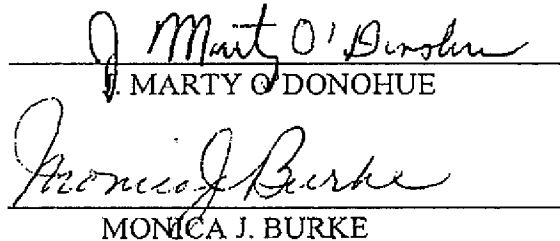 J Marty O'Donohue
J. MARTY O'DONOHUE
Monica J Burke
MONICA J. BURKE